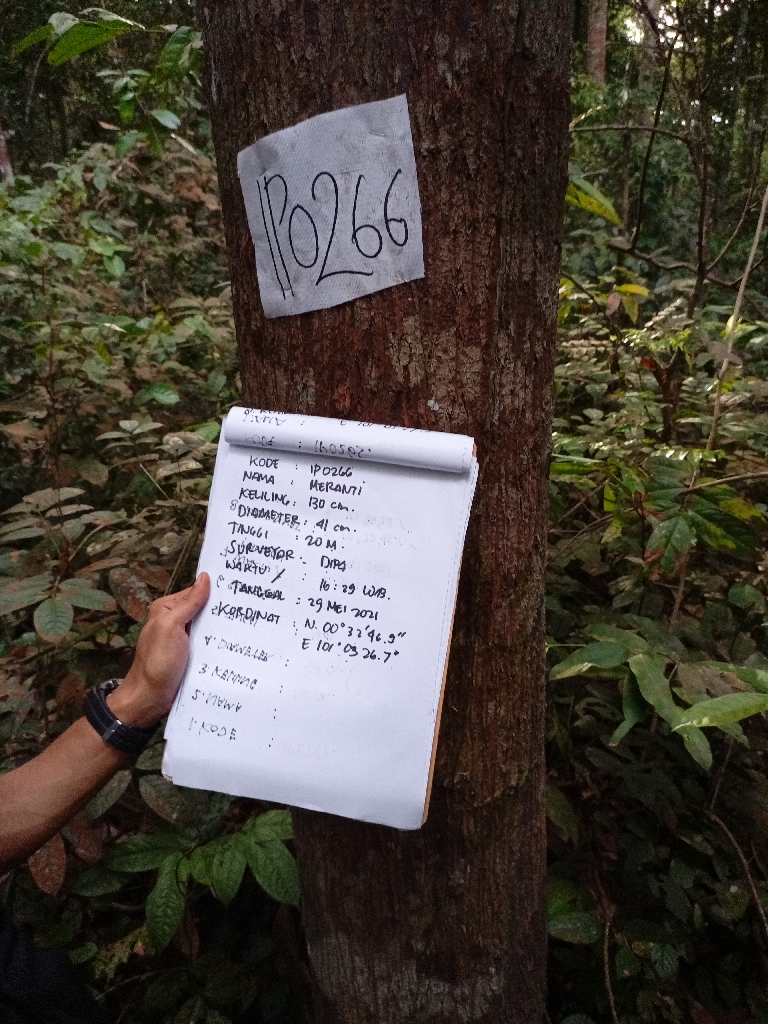 IP0266
KODE : IP0266
NAMA : MERANTI
KELILING : 130 cm.
DIAMETER : 41 cm.
TINGGI : 20 M.
SURVEYOR - DIPA
WAKTU / : 16:29 WIB.
TANGGAL : 29 MEI 2021
KORDINAT : N. 00° 32' 46.9"
E 101° 03' 26.7"